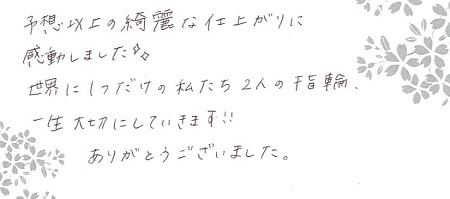 予想以上の綺麗な仕上がりに
感動しました✧✧
世界に1つだけの私たち2人の指輪、
一生大切にしていきます!!
ありがとうございました。